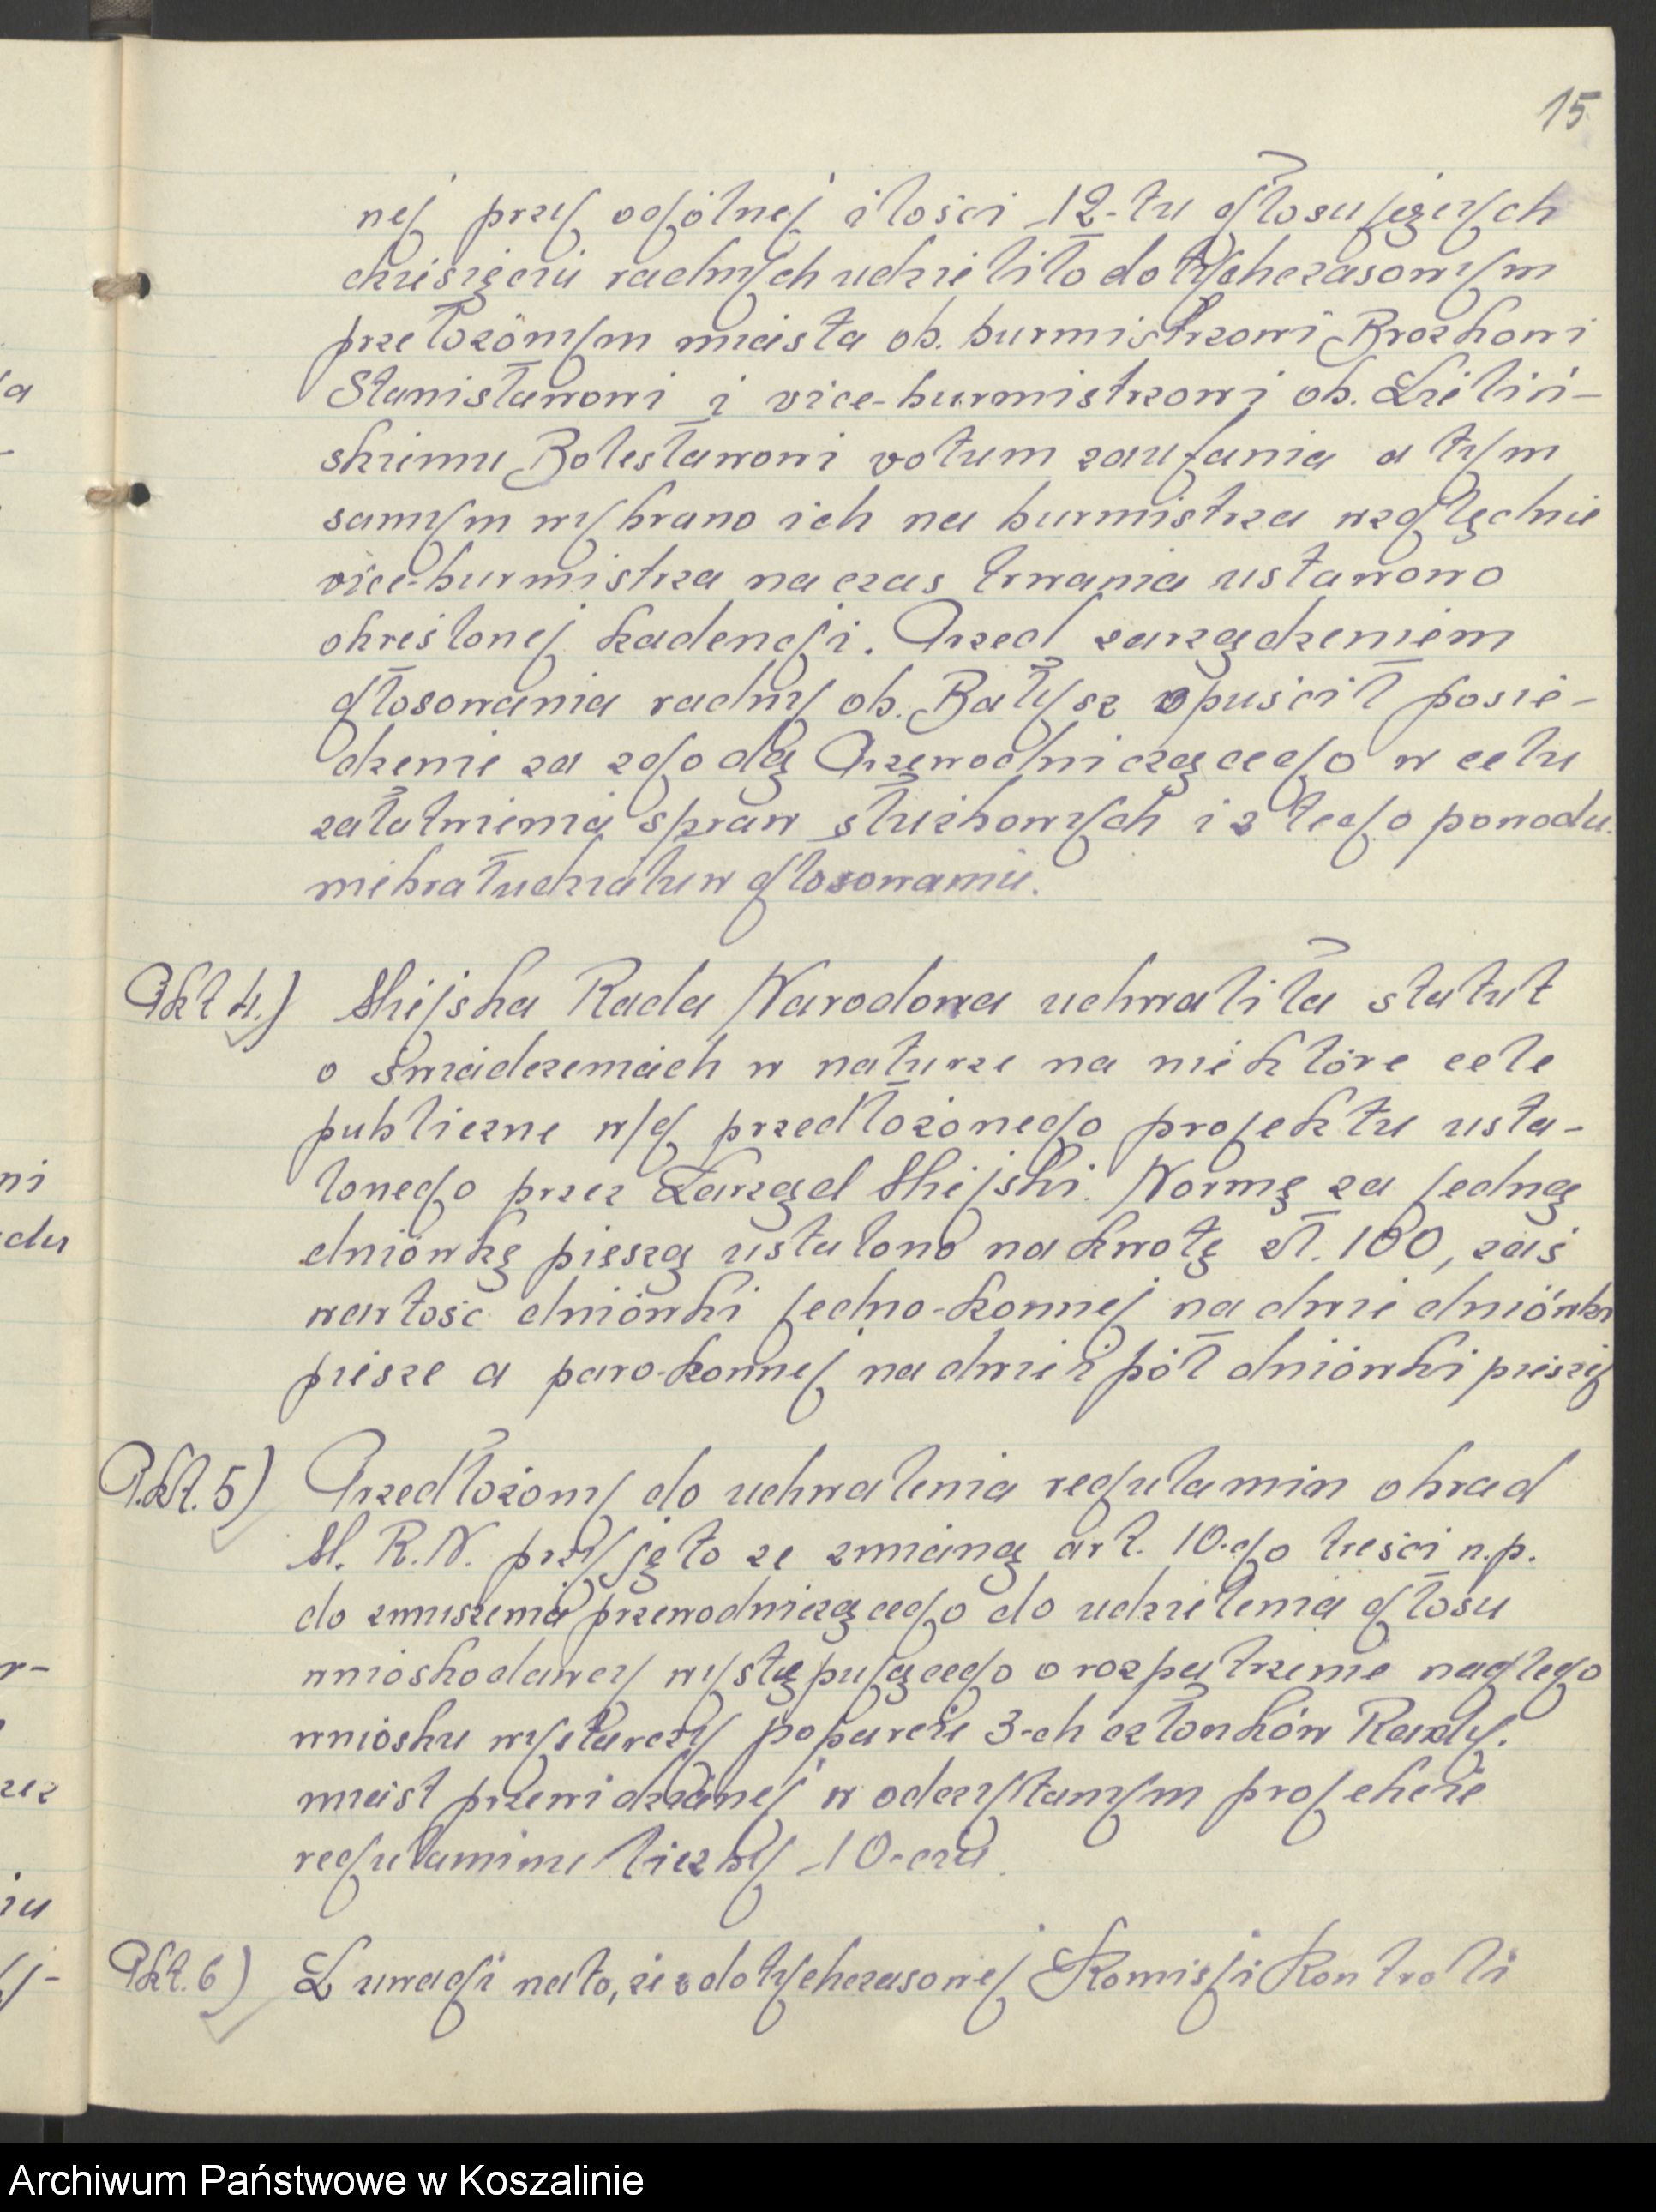 15
nej przy ogólnej ilości 12-tu głosujących
dziesięciu radnych udzieliło dotychczasowym
przełożonym miasta ob. burmistrzowi Brozkowi
Stanisławowi i vice-burmistrzowi ob. Zieliń-
skiemu Bolesławowi votum zaufania a tym
samym wybrano ich na burmistrza względnie
vice-burmistrza na czas trwania ustawowo
określonej kadencji. Przed zarządzeniem
głosowania radny ob. Bałysz opuścił posie-
dzenie za zgodą Przewodniczącego w celu
załatwienia spraw służbowych i z tego powodu
nie brał udziału w głosowaniu.
Pkt 4.) Miejska Rada Narodowa uchwaliła statut
o świadczeniach w naturze na niektóre cele
publiczne w/g przedłożonego projektu usta-
lonego przez Zarząd Miejski. Normę za jedną
dniówkę pieszą ustalono na kwotę zł. 100, zaś
wartość dniówki jedno-konnej na dwie dniówki
piesze a paro-konnej na dwie i pół dniówki pieszej
Pkt. 5) Przedłożony do uchwalenia regulamin obrad
M. R. N. przyjęto ze zmianą art. 10-go treści n.p.
do zmuszenia przewodniczącego do udzielenia głosu
wnioskodawcy występującego o rozpatrzenie nagłego
wniosku wystarczy poparcie 3-ch członków Rady.
miast przewidzianej w odczytanym projekcie
regulaminu liczby 10-ciu
Pkt. 6) Z uwagi na to, że z dotychczasowej Komisji Kontroli
a
ni
du
r-
zez
iu
Archiwum Państwowe w Koszalinie